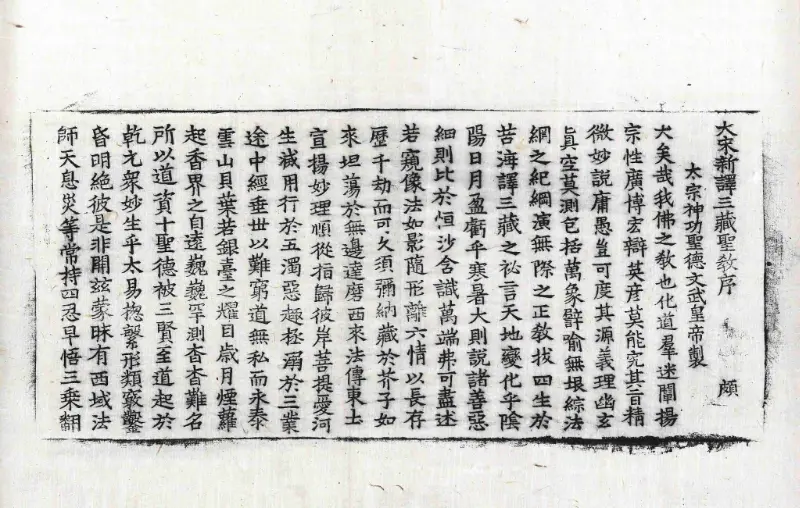 大宋新譯三藏聖教序
太宗神功聖德文武皇帝製 頗
大矣哉我佛之教也化道羣迷闡揚
宗性廣博宏辯英彦莫能究其旨精
微妙說庸愚豈可度其源義理幽玄
真空莫測包括萬象譬喻無垠綜法
網之紀綱演無際之正教拔四生於
苦海譯三藏之祕言天地變化乎陰
陽日月盈虧乎寒暑大則說諸善惡
細則比於恒沙含識萬端弗可盡述
若窺像法如影隨形離六情以長存
歷千劫而可久須彌納藏於芥子如
來坦蕩於無邊達磨西來法傳東土
宣揚妙理順從指歸彼岸菩提愛河
生滅用行於五濁惡趣拯溺於三業
途中經垂世以難窮道無私而永泰
雲山貝葉若銀臺之耀目歲月煙蘿
起香界之自遠巍巍罕測杳杳難名
所以道資十聖德被三賢至道起於
乾元衆妙生乎太易揔繫形類竅鑿
昏明絶彼是非開茲蒙昧有西域法
師天息災等常持四忍早悟三乘翻